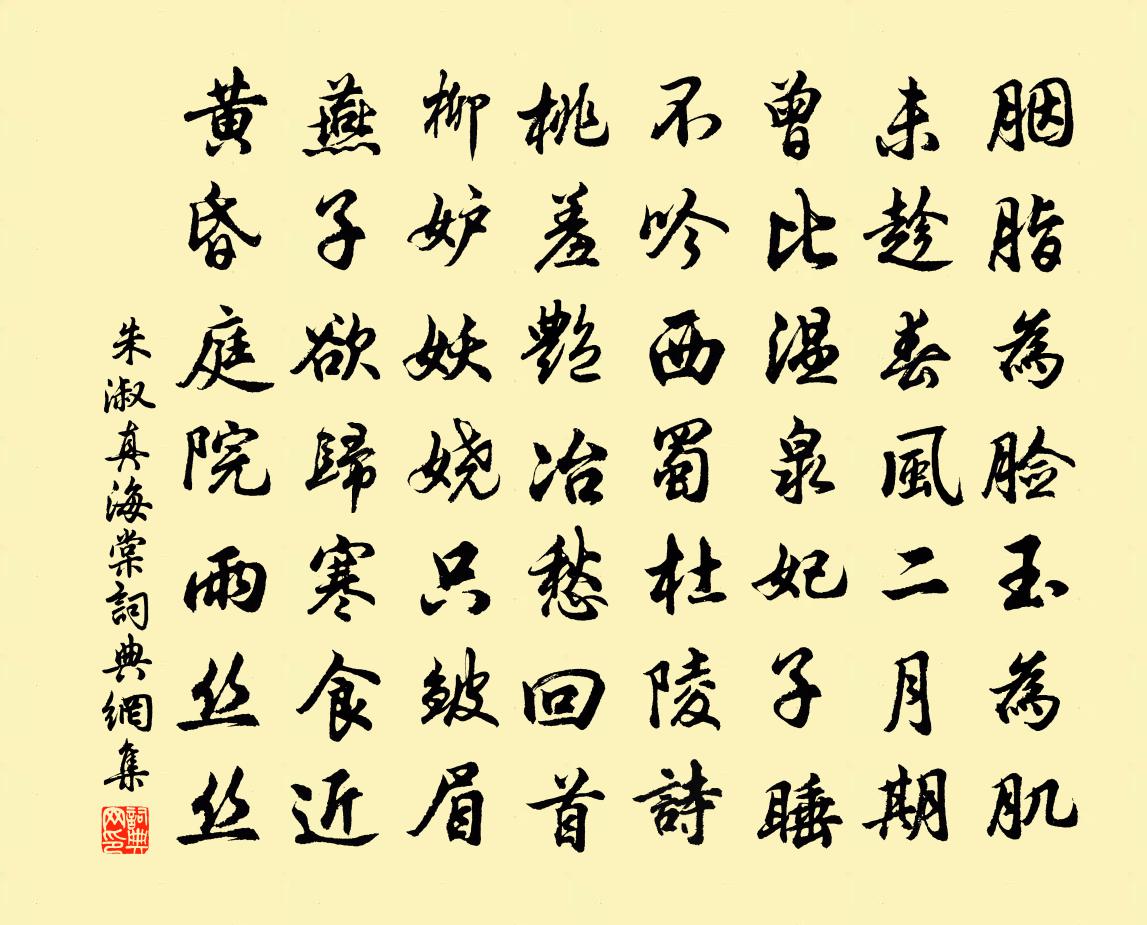 胭脂為臉玉為肌
未趁春風二月期
曾比温泉妃子睡
不吟西蜀杜陵詩
桃羞艷冶愁回首
柳妒妖嬈只皺眉
燕子欲歸寒食近
黄昏庭院雨丝丝
朱淑真海棠詞典網集
詞典网印